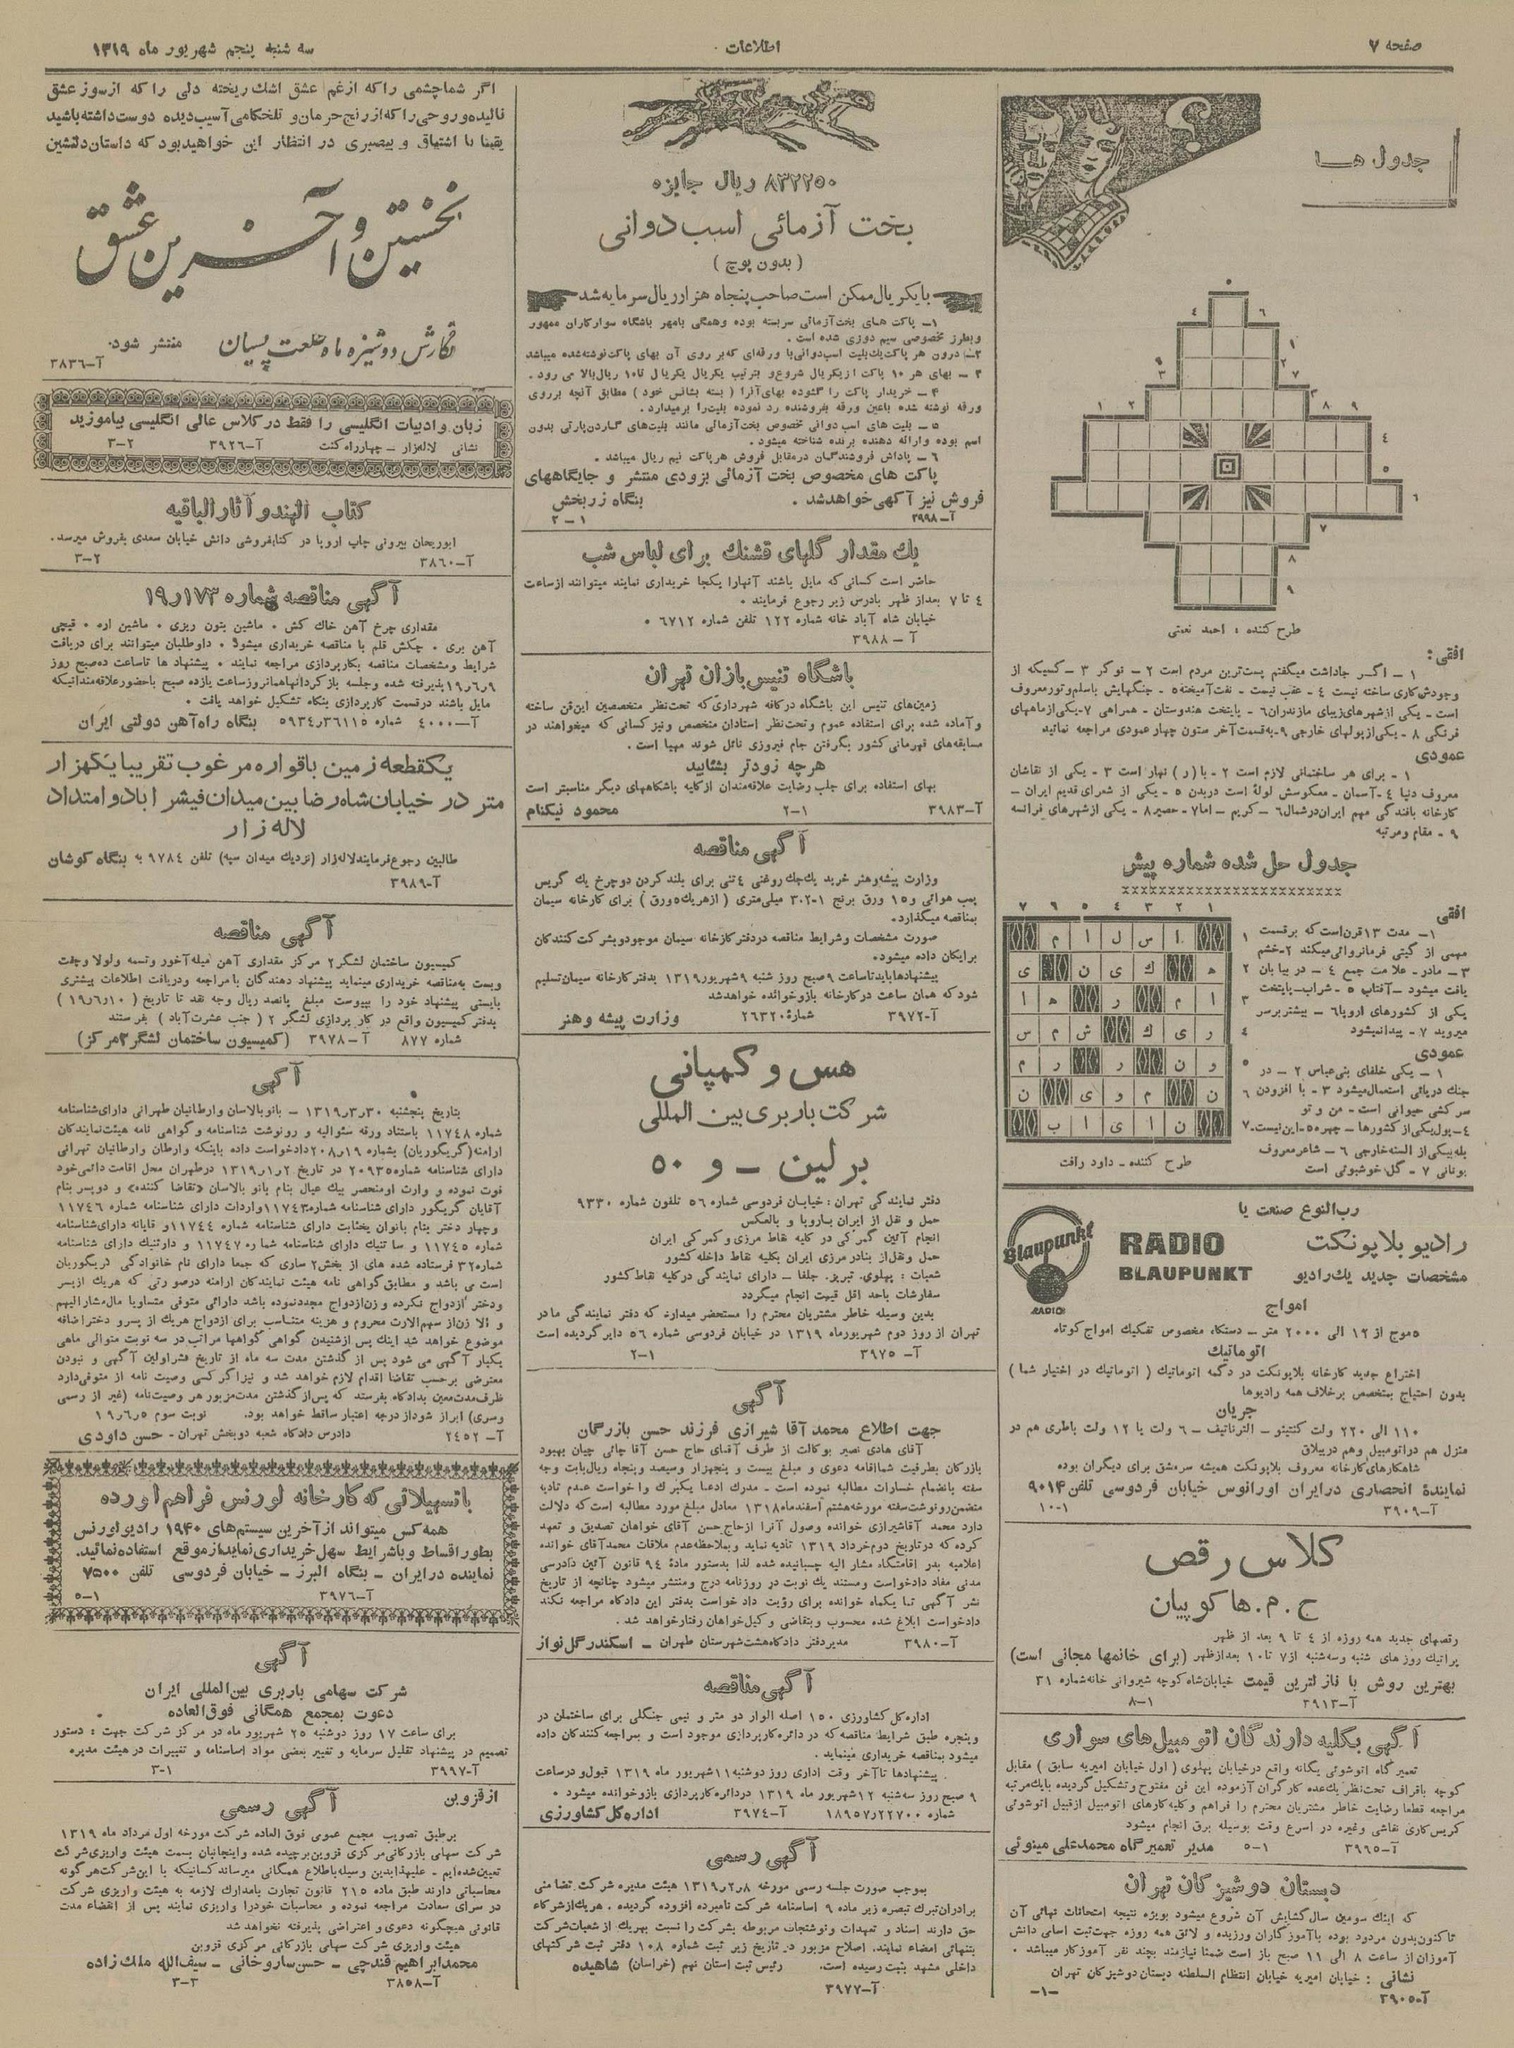 صفحه ۷
اطلاعات
سه شنبه پنجم شهریور ماه ۱۳۱۹
جدول ها
طرح کننده : احمد نعمتی
افقی :
۱ - اگر جاداشت میگفتم پست‌ترین مردم است ۲ - نوکر ۳ - کسیکه از
وجودش کاری ساخته نیست ۴ - عقب نیست - نفت آمیخته ۵ - جنگهایش باسلم و تور معروف
است - یکی از شهرهای زیبای مازندران ۶ - پایتخت هندوستان - همراهی ۷ - یکی از ماههای
فرنگی ۸ - یکی از پولهای خارجی ۹ - به قسمت آخر ستون چهار عمودی مراجعه نمائید
عمودی
۱ - برای هر ساختمانی لازم است ۲ - با (ر) نهار است ۳ - یکی از نقاشان
معروف دنیا ۴ - آسمان - معکوسش لولهٔ است در بدن ۵ - یکی از شعرای قدیم ایران -
کارخانه بافندگی مهم ایران در شمال ۶ - کریم - اما ۷ - حصیر ۸ - یکی از شهرهای فرانسه
۹ - مقام و مرتبه
جدول حل شده شماره پیش
۱ ۲ ۳ ۴ ۵ ۶ ۷
افقی
۱- مدت ۱۳ قرن است که بر قسمت
مهمی از گیتی فرمانروائی میکند ۲- خشم
۳ - مادر - علامت جمع ۴ - در بیابان
یافت میشود - آفتاب ۵ - شراب - پایتخت
یکی از کشورهای اروپا ۶ - بیشتر بر سر
میروید ۷ - پیدا نمیشود
عمودی
۱ - یکی خلفای بنی عباس ۲ - در
جنك دریائی استعمال میشود ۳ - با افزودن
سر کشی حیوانی است - من و تو
۴ - پول یکی از کشورها - چهره ۵ - این نیست -
بله بیکی از السنه خارجی ۶ - شاعر معروف
یونانی ۷ - گل خوشبوئی است
طرح کننده - داود رافت
رب النوع صنعت یا
رادیو بلاپونکت
RADIO
BLAUPUNKT
Blaupunkt
RADIO
مشخصات جدید یك رادیو
امواج
۵ موج از ۱۲ الی ۲۰۰۰ متر - دستگاه مخصوص تفکیك امواج کوتاه
اتوماتیك
اختراع جدید کارخانه بلاپونکت در دگمه اتوماتیك ( اتوماتیك در اختیار شما )
بدون احتیاج بمتخصص برخلاف همه رادیوها
جریان
۱۱۰ الی ۲۲۰ ولت کنتینو - الترناتیف - ۶ ولت یا ۱۲ ولت باطری هم در
منزل هم در اتومبیل وهم در ییلاق
شاهکارهای کارخانه معروف بلاپونکت همیشه سرمشق برای دیگران بوده
نمایندهٔ انحصاری در ایران اورانوس خیابان فردوسی تلفن ۹۰۱۴
آ-۳۹۰۹ ۱-۱۰
کلاس رقص
ج . م . هاکوپیان
رقصهای جدید همه روزه از ۴ تا ۹ بعد از ظهر
پراتیك روزهای شنبه و سه‌شنبه از ۷ تا ۱۰ بعد از ظهر (برای خانمها مجانی است)
بهترین روش با نازلترین قیمت خیابان شاه کوچه شیروانی خانه شماره ۳۱
آ-۳۹۱۳ ۱-۸
آگهی بکلیه دارندگان اتومبیل‌های سواری
تعمیرگاه اتوشوئی یگانه واقع در خیابان پهلوی ( اول خیابان امیریه سابق ) مقابل
کوچه باقراف تحت‌نظر یك عده کارگران آزموده این فن مفتوح و تشکیل گردیده بایك مرتبه
مراجعه قطعا رضایت خاطر مشتریان محترم را فراهم و کلیه کارهای اتومبیل از قبیل اتوشوئی
گریس کاری نقاشی وغیره در اسرع وقت بوسیله برق انجام میشود
آ-۳۹۶۵ ۱-۵ مدیر تعمیرگاه محمدعلی مینوئی
دبستان دوشیزگان تهران
که اینك سومین سال گشایش آن شروع میشود بویژه نتیجه امتحانات نهائی آن
تاکنون بدون مردود بوده باآموزگاران ورزیده و لائق همه روزه جهت ثبت اسامی دانش
آموزان از ساعت ۸ الی ۱۱ صبح باز است ضمنا نیازمند بچند نفر آموزگار میباشد .
نشانی : خیابان امیریه خیابان انتظام السلطنه دبستان دوشیزگان تهران
آ-۳۹۰۵ -۱-
۸۳۲۲۵۰ ریال جایزه
بخت آزمائی اسب دوانی
( بدون پوچ )
با یکریال ممکن است صاحب پنجاه هزار ریال سرمایه شد
۱- پاکت های بخت آزمائی سربسته بوده وهمگی بامهر باشگاه سوارکاران ممهور
وبطرز مخصوصی سیم دوزی شده است .
۲- درون هر پاکت یك بلیت اسب دوانی با ورقه‌ای که بر روی آن بهای پاکت نوشته شده میباشد
۳ - بهای هر ۱۰ پاکت از یکریال شروع و بترتیب یکریال یکریال تا ۱۰ ریال بالا می رود .
۴ - خریدار پاکت را گشوده بهای آنرا ( بسته بشانس خود ) مطابق آنچه برروی
ورقه نوشته شده باعین ورقه بفروشنده رد نموده بلیت را برمیدارد .
۵ - بلیت های اسب دوانی مخصوص بخت آزمائی مانند بلیت‌های گاردن پارتی بدون
اسم بوده وارائه دهنده برنده شناخته میشود .
۶ - پاداش فروشندگان درمقابل فروش هر پاکت نیم ریال میباشد .
پاکت های مخصوص بخت آزمائی بزودی منتشر و جایگاههای
فروش نیز آگهی خواهد شد . بنگاه زربخش
آ-۳۹۹۸ ۱-۲
یك مقدار گلهای قشنك برای لباس شب
حاضر است کسانی که مایل باشند آنهارا یکجا خریداری نمایند میتوانند از ساعت
۴ تا ۷ بعد از ظهر بادرس زیر رجوع فرمایند .
خیابان شاه آباد خانه شماره ۱۲۲ تلفن شماره ۶۷۱۲ .
آ - ۳۹۸۸
باشگاه تنیس بازان تهران
زمین‌های تنیس این باشگاه در کافه شهرداری که تحت‌نظر متخصصین این فن ساخته
و آماده شده برای استفاده عموم وتحت‌نظر استادان متخصص ونیز کسانی که میخواهند در
مسابقه‌های قهرمانی کشور بگرفتن جام فیروزی نائل شوند مهیا است .
هرچه زودتر بشتابید
بهای استفاده برای جلب رضایت علاقمندان از کلیه باشگاههای دیگر مناسبتر است
آ-۳۹۸۳ ۱-۲ محمود نیکنام
آگهی مناقصه
وزارت پیشه وهنر خرید یك جك روغنی ۴ تنی برای بلند کردن دوچرخ یك گریس
پمپ هوائی و ۱۵ ورق برنج ۱-۲-۳ میلی‌متری ( از هریك ۵ ورق ) برای کارخانه سیمان
بمناقصه میگذارد.
صورت مشخصات وشرایط مناقصه در دفتر کارخانه سیمان موجود و بشرکت کنندگان
برایگان داده میشود.
پیشنهادها باید تا ساعت ۹ صبح روز شنبه ۹ شهریور ۱۳۱۹ بدفتر کارخانه سیمان تسلیم
شود که همان ساعت در کارخانه باز و خوانده خواهد شد
آ-۳۹۷۲ شماره ۲۶۳۲۰ وزارت پیشه وهنر
هس و کمپانی
شرکت باربری بین المللی
برلین - و ۵۰
دفتر نمایندگی تهران : خیابان فردوسی شماره ۵۶ تلفون شماره ۹۳۳۰
حمل و نقل از ایران باروپا و بالعکس
انجام آئین گمرکی در کلیه نقاط مرزی و گمرکی ایران
حمل و نقل از بنادر مرزی ایران بکلیه نقاط داخله کشور
شعبات : پهلوی. تبریز. جلفا - دارای نمایندگی در کلیه نقاط کشور
سفارشات باحد اقل قیمت انجام میگردد
بدین وسیله خاطر مشتریان محترم را مستحضر میدارد که دفتر نمایندگی ما در
تهران از روز دوم شهریورماه ۱۳۱۹ در خیابان فردوسی شماره ۵۶ دایر گردیده است
آ- ۳۹۷۵ ۱-۲
آگهی
جهت اطلاع محمد آقا شیرازی فرزند حسن بازرگان
آقای هادی نصیر بوکالت از طرف آقای حاج حسن آقا چائی چیان بهبود
بازرگان بطرفیت شما اقامه دعوی و مبلغ بیست و پنجهزار وسیصد و پنجاه ریال بابت وجه
سفته بانضمام خسارات مطالبه نموده است - مدرك ادعا یکبرك واخواست عدم تادیه
متضمن رونوشت سفته مورخه هشتم اسفندماه ۱۳۱۸ معادل مبلغ مورد مطالبه است که دلالت
دارد محمد آقا شیرازی خوانده وصول آنرا از حاج حسن آقای خواهان تصدیق و تعهد
کرده که در تاریخ دوم خرداد ۱۳۱۹ تادیه نماید و بملاحظه عدم ملاقات محمدآقای خوانده
اعلامیه بدر اقامتگاه مشار الیه چسبانیده شده لذا بدستور مادهٔ ۹۴ قانون آئین دادرسی
مدنی مفاد دادخواست ومستند یك نوبت در روزنامه درج ومنتشر میشود چنانچه از تاریخ
نشر آگهی تا یکماه خوانده برای رؤیت دادخواست بدفتر این دادگاه مراجعه نکند
دادخواست ابلاغ شده محسوب وبتقاضی وکیل خواهان رفتار خواهد شد .
آ-۳۹۸۰ مدیر دفتر دادگاه هشت شهرستان طهران - اسکندر گل نواز
آگهی مناقصه
اداره کل کشاورزی ۱۵۰ اصله الوار دو متر و نیمی جنگلی برای ساختمان در
وپنجره طبق شرایط مناقصه که در دائره کارپردازی موجود است و بمراجعه کنندگان داده
میشود بمناقصه خریداری مینماید .
پیشنهادها تا آخر وقت اداری روز دوشنبه ۱۱ شهریور ماه ۱۳۱۹ قبول و در ساعت
۹ صبح روز سه‌شنبه ۱۲ شهریور ماه ۱۳۱۹ در دائره کارپردازی باز و خوانده میشود .
شماره ۲۲۷۰۰ر۱۸۹۵۷ آ-۳۹۷۴ اداره کل کشاورزی
آگهی رسمی
بموجب صورت جلسه رسمی مورخه ۸ر۲ر۱۳۱۹ هیئت مدیره شرکت تضامنی
برادران تبرك تبصره زیر ماده ۹ اساسنامه شرکت نامبرده افزوده گردیده . هریك از شرکاء
حق دارند اسناد و تعهدات ونوشتجات مربوطه بشرکت را نسبت بهریك از شعبات شرکت
بتنهائی امضاء نمایند. اصلاح مزبور در تاریخ زیر ثبت شماره ۱۰۸ دفتر ثبت شرکتهای
داخلی مشهد بثبت رسیده است. رئیس ثبت استان نهم (خراسان) شاهیده
آ-۳۹۷۷
اگر شما چشمی را که از غم عشق اشك ریخته دلی را که از سوز عشق
نالیده وروحی را که از رنج حرمان و تلخکامی آسیب دیده دوست داشته باشید
یقینا با اشتیاق و بیصبری در انتظار این خواهید بود که داستان دلنشین
نخستین و آخرین عشق
نگارش دوشیزه ماه طلعت پسیان منتشر شود.
آ-۳۸۳۶
زبان و ادبیات انگلیسی را فقط در کلاس عالی انگلیسی بیاموزید
نشانی لاله‌زار - چهارراه کنت آ-۳۹۲۶ ۲-۳
کتاب الهند و آثار الباقیه
ابوریحان بیرونی چاپ اروپا در کتابفروشی دانش خیابان سعدی بفروش میرسد.
آ-۳۸۶۰ ۲-۳
آگهی مناقصه شماره ۱۷۳ر۱۹
مقداری چرخ آهن خاك کش . ماشین بتون ریزی . ماشین اره . قیچی
آهن بری . چکش قلم با مناقصه خریداری میشود . داوطلبان میتوانند برای دریافت
شرایط ومشخصات مناقصه بکارپردازی مراجعه نمایند . پیشنهاد ها تا ساعت ده صبح روز
۹ر۶ر۱۹ پذیرفته شده وجلسه باز کردن آنها همانروز ساعت یازده صبح باحضور علاقه‌مندانیکه
مایل باشند درقسمت کارپردازی بنگاه تشکیل خواهد یافت .
آ-۴۰۰۰ شماره ۳۶۱۱۵ر۵۹۳۴ بنگاه راه آهن دولتی ایران
یکقطعه زمین باقواره مرغوب تقریبا یکهزار
متر در خیابان شاه رضا بین میدان فیشر اباد و امتداد
لاله زار
طالبین رجوع فرمایند لاله زار (نزدیك میدان سپه) تلفن ۹۷۸۴ به بنگاه کوشان
آ-۳۹۸۹
آگهی مناقصه
کمیسیون ساختمان لشگر ۲ مرکز مقداری آهن میله آخور وتسمه ولولا وچفت
وبست به مناقصه خریداری مینماید پیشنهاد دهندگان با مراجعه ودریافت اطلاعات بیشتری
بایستی پیشنهاد خود را بپیوست مبلغ پانصد ریال وجه نقد تا تاریخ ( ۱۰ر۶ر۱۹ )
بدفتر کمیسیون واقع در کار پردازی لشگر ۲ ( جنب عشرت آباد ) بفرستند
شماره ۸۷۷ آ-۳۹۷۸ (کمیسیون ساختمان لشگر ۲ مرکز)
آگهی
بتاریخ پنجشنبه ۳۰ر۳ر۱۳۱۹ - بانو بالاسان وارطانیان طهرانی دارای شناسنامه
شماره ۱۱۷۴۸ باستناد ورقه سئوالیه و رونوشت شناسنامه و گواهی نامه هیئت نمایندگان
ارامنه (گریگوریان) بشماره ۱۹ر۲۰۸ دادخواست داده باینکه وارطان وارطانیان تهرانی
دارای شناسنامه شماره ۲۰۹۳۵ در تاریخ ۲ر۱ر۱۳۱۹ درطهران محل اقامت دائمی خود
فوت نموده و وارث او منحصر بیك عیال بنام بانو بالاسان «تقاضا کننده» و دو پسر بنام
آقایان گریگور دارای شناسنامه شماره ۱۱۷۴۳ و اردات دارای شناسنامه شماره ۱۱۷۴۶
وچهار دختر بنام بانوان یختابت دارای شناسنامه شماره ۱۱۷۴۴ و قایانه دارای شناسنامه
شماره ۱۱۷۴۵ و ساتنیك دارای شناسنامه شماره ۱۱۷۴۷ و دارتنیك دارای شناسنامه
شماره ۳۲ فرستاده شده های از بخش ۲ ساری که جمعا دارای نام خانوادگی گریگوریان
است می باشد و مطابق گواهی نامه هیئت نمایندگان ارامنه درصورتی که هریك از پسر
ودختر ازدواج نکرده و زن ازدواج مجدد نموده باشد دارائی متوفی متساویا مال مشارالیهم
و الا زن از سهم الارث محروم و هزینه متناسب برای ازدواج هریك از پسر و دختر اضافه
موضوع خواهد شد اینك پس از شنیدن گواهی گواهها مراتب در سه نوبت متوالی ماهی
یکبار آگهی می شود پس از گذشتن مدت سه ماه از تاریخ نشر اولین آگهی و نبودن
معترضی برحسب تقاضا اقدام لازم خواهد شد و نیز اگر کسی وصیت نامه از متوفی دارد
ظرف مدت معین بدادگاه بفرستد که پس از گذشتن مدت مزبور هر وصیت نامه (غیر از رسمی
وسری) ابراز شود از درجه اعتبار ساقط خواهد بود. نوبت سوم ۵ر۶ر۱۹
آ- ۲۴۵۲ دادرس دادگاه شعبه دو بخش تهران - حسن داودی
با تسهیلاتی که کارخانه لورنس فراهم اورده
همه کس میتواند از آخرین سیستم‌های ۱۹۴۰ رادیو لورنس
بطور اقساط وبا شرایط سهل خریداری نماید از موقع استفاده نمائید.
نماینده در ایران - بنگاه البرز - خیابان فردوسی تلفن ۷۵۰۰
آ-۳۹۷۶ ۱-۵
آگهی
شرکت سهامی باربری بین‌المللی ایران
دعوت بمجمع همگانی فوق‌العاده
برای ساعت ۱۷ روز دوشنبه ۲۵ شهریور ماه در مرکز شرکت جهت : دستور
تصمیم در پیشنهاد تقلیل سرمایه و تغییر بعضی مواد اساسنامه و تغییرات در هیئت مدیره
آ-۳۹۹۷ ۱-۳
از قزوین
آگهی رسمی
برطبق تصویب مجمع عمومی فوق العاده شرکت مورخه اول مرداد ماه ۱۳۱۹
شرکت سهامی بازرگانی مرکزی قزوین برچیده شده و اینجانبان بسمت هیئت واریزی شرکت
تعیین شده‌ایم - علیهذا بدین وسیله باطلاع همگانی میرساند کسانیکه با این شرکت هرگونه
محاسباتی دارند طبق ماده ۲۱۵ قانون تجارت بامدارك لازمه به هیئت واریزی شرکت
در سرای سعادت مراجعه نموده و محاسبات خود را واریزی نمایند پس از انقضاء مدت
قانونی هیچگونه دعوی و اعتراضی پذیرفته نخواهد شد
هیئت واریزی شرکت سهامی بازرگانی مرکزی قزوین
محمدابراهیم قندچی - حسن ساروخانی - سیف‌الله ملك زاده
آ-۳۸۵۸ ۳-۳